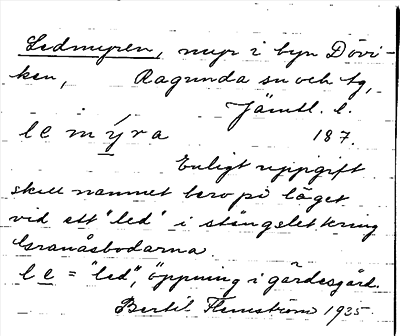 Ledmyren, myr i byn Dövi-
ken, Ragunda sn och tg,
Jämtl. l.
le mýra 187.
Enligt uppgift
skall namnet bero på läget
vid ett "led" i stängslet kring
Granåsbodarna.
le = "led", öppning i gärdesgård.
Bertil Flemström 1935.